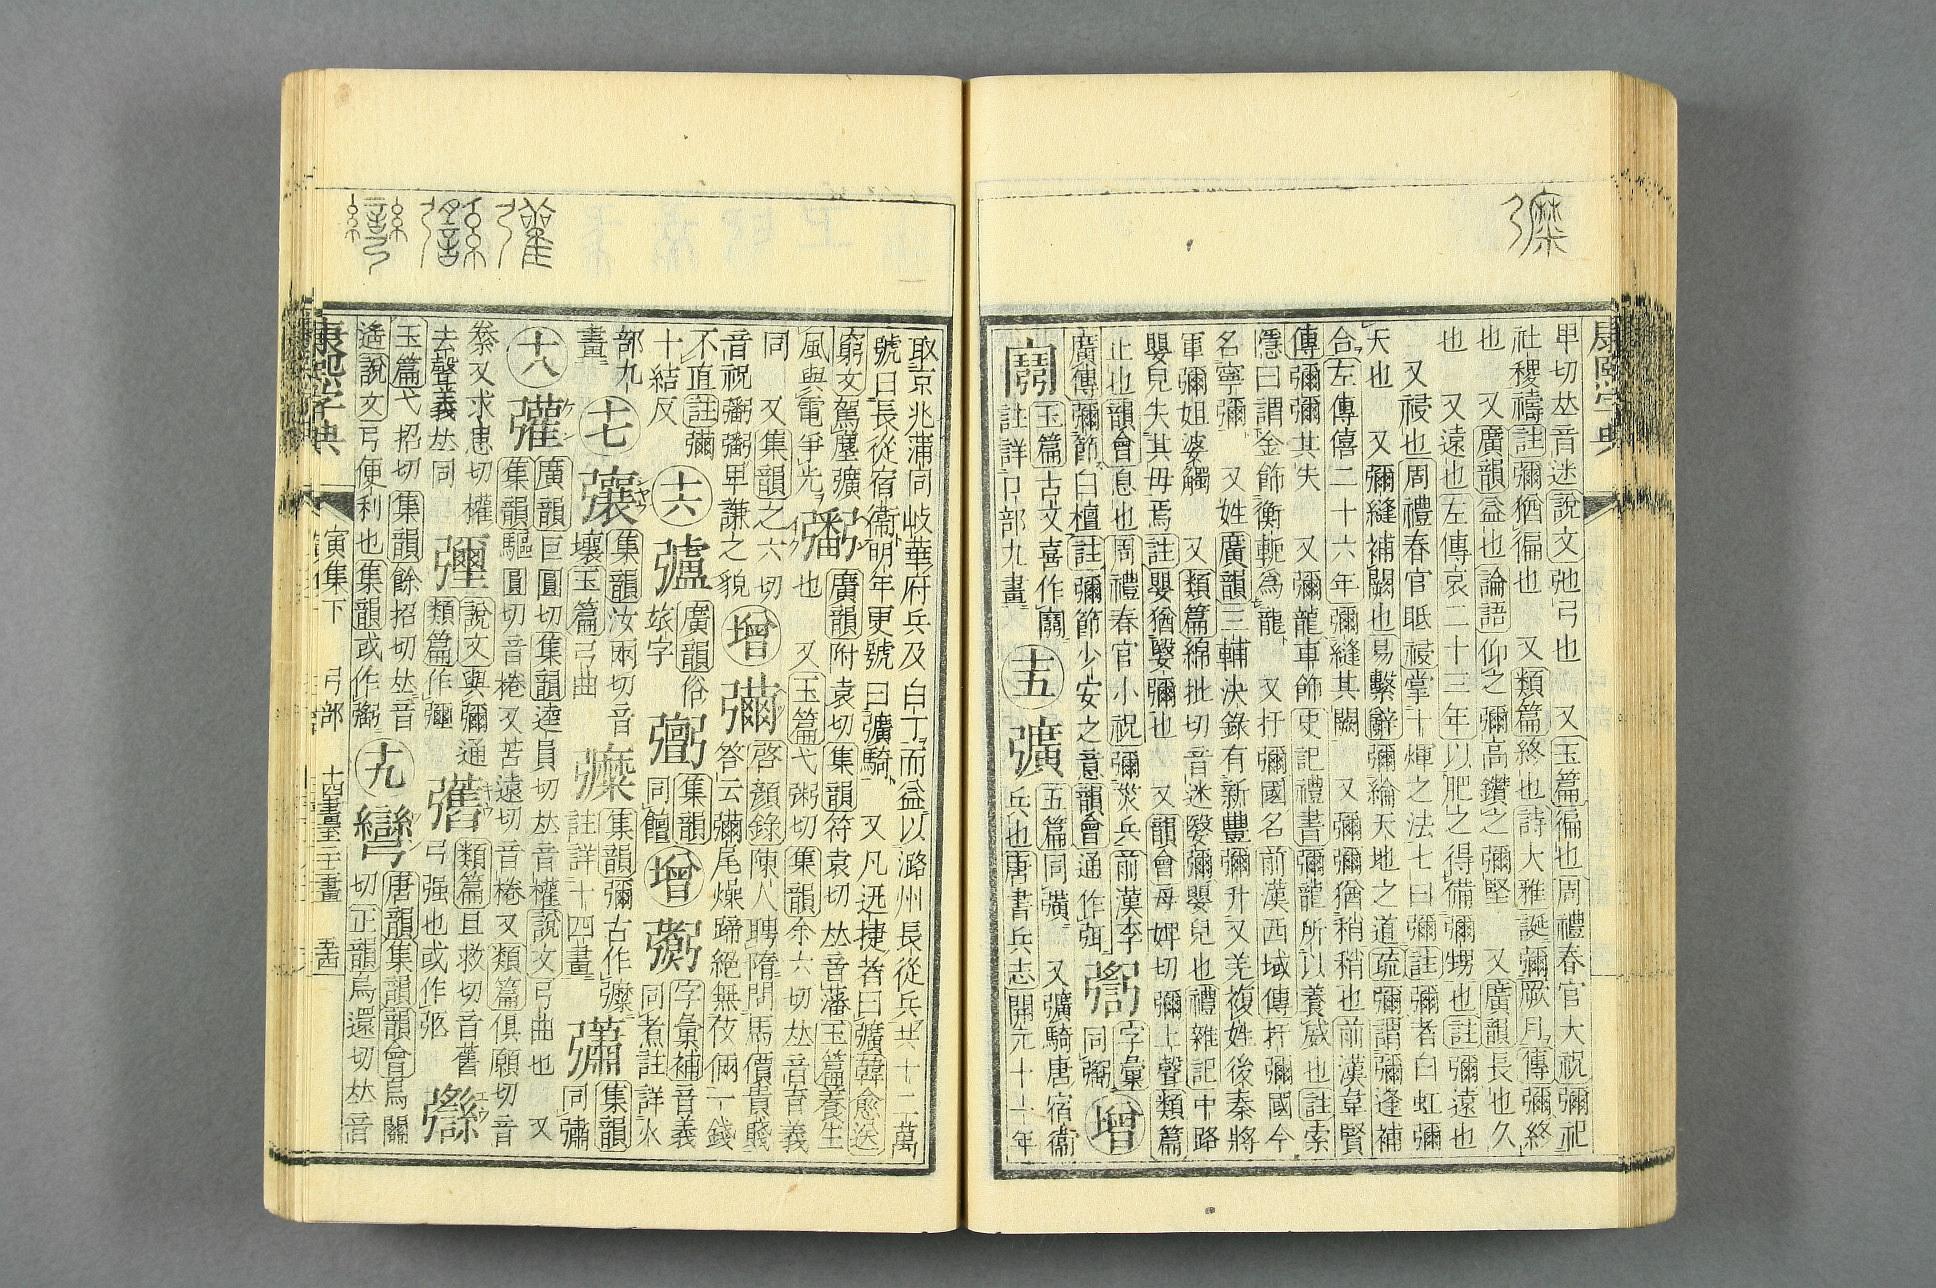 康熙字典
串切𠀤音迷說文弛弓也 又玉篇徧也周禮春官大祝彌祀
社稷禱註彌猶徧也 又類篇終也詩大雅誕彌厥月傳彌終
也 又廣韻益也論語仰之彌高鑽之彌堅 又廣韻長也久
也 又遠也左傳哀二十三年以肥之得備彌甥也註彌遠也
又祲也周禮春官眡祲掌十煇之法七曰彌註彌者白虹彌
天也 又彌縫補闕也易繫辭彌綸天地之道疏彌謂彌逢補
合左傳僖二十六年彌縫其闕 又彌彌猶稍稍也前漢韋賢
傳彌彌其失 又彌龍車飾史記禮書彌龍所以養威也註索
隱曰謂金飾衡軛為龍 又扜彌國名前漢西域傳扜彌國今
名寧彌 又姓廣韻三輔決錄有新豐彌升又羌複姓後秦將
軍彌姐婆觸 又類篇綿批切音迷嫛彌嬰兒也禮雜記中路
嬰兒失其母焉註嬰猶嫛彌也 又韻會母婢切彌上聲類篇
止也韻會息也周禮春官小祝彌災兵前漢李
廣傳彌節白檀註彌節少安之意韻會通作弭
玉篇古文喜作
註詳口部九畫
十五
彍
玉篇同彉 又彍騎唐宿衞
兵也唐書兵志開元十一年
字彙
同
增
取京兆蒲同岐華府兵及白丁而益以潞州長從兵共十二萬
號曰長從宿衞明年更號曰彍騎 又凡迅捷者曰彍韓愈送
窮文駕塵彍
風與電爭光
廣韻附袁切集韻符袁切𠀤音藩玉篇養生
也 又玉篇弋粥切集韻余六切𠀤音育義
同 又集韻之六切
音祝粥粥卑謙之貌
增
啓顏錄陳人聘隋問馬價貴賤
答云彌尾燥蹄絕無伎倆一錢
不直註
十結反
十六
廣韻俗
玈字
集韻
同饘
增
字彙補音義
同煮註詳火
部九
畫
十七
集韻汝兩切音
壤玉篇弓曲
集韻彌古作
註詳十四畫
集韻
同
十八
彏
廣韻巨圓切集韻逵員切𠀤音權說文弓曲也 又
集韻驅圓切音棬又苦遠切音棬又類篇俱願切音
桊又求患切權
去聲義𠀤同
說文與彌通
類篇作彌
類篇且救切音舊
弓强也或作
玉篇弋招切集韻餘招切𠀤音
遙說文弓便利也集韻或作
十九
彎
唐韻集韻韻會烏關
切正韻烏還切𠀤音
康熙字典 寅集下 弓部 十四畫至十九畫